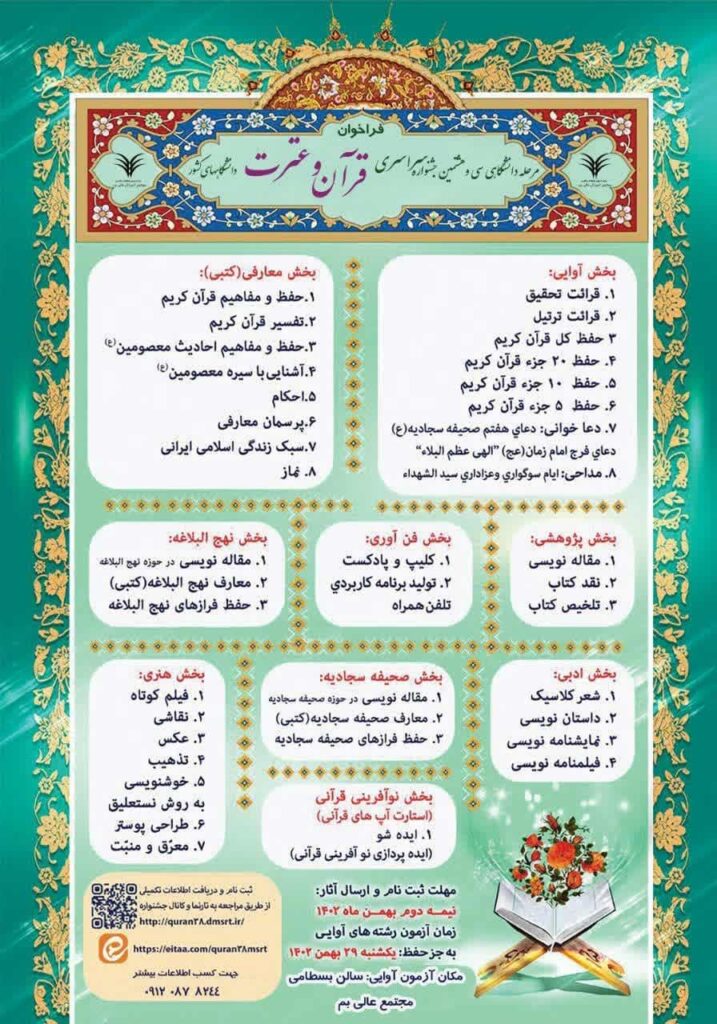 فراخوان
مرحله دانشگاهی سی و هشتمین جشنواره سراسری قرآن و عترت دانشگاههای کشور
بخش آوایی:
۱. قرائت تحقیق
۲. قرائت ترتیل
۳ حفظ کل قرآن کریم
۴. حفظ ۲۰ جزء قرآن کریم
۵. حفظ ۱۰ جزء قرآن کریم
۶. حفظ ۵ جزء قرآن کریم
۷. دعا خوانی: دعاي هفتم صحیفه سجادیه(ع)
دعاي فرج امام زمان(عج) "الهی عظم البلاء"
۸. مداحی: ایام سوگواري وعزاداري سید الشهداء
بخش معارفی(کتبی):
۱.حفظ و مفاهیم قرآن کریم
۲.تفسیر قرآن کریم
۳.حفظ و مفاهیم احادیث معصومین(ع)
۴.آشنایی با سیره معصومین(ع)
۵.احکام
۶.پرسمان معارفی
۷.سبک زندگی اسلامی ایرانی
۸. نماز
بخش پژوهشی:
۱. مقاله نویسی
۲. نقد کتاب
۳. تلخیص کتاب
بخش فن آوری:
۱. کلیپ و پادکست
۲. تولید برنامه کاربردي
تلفن همراه
بخش نهج البلاغه:
۱. مقاله نویسی در حوزه نهج البلاغه
۲. معارف نهج البلاغه(کتبی)
۳. حفظ فرازهای نهج البلاغه
بخش ادبی:
۱. شعر کلاسیک
۲. داستان نویسی
۳. نمایشنامه نویسی
۴. فیلمنامه نویسی
بخش صحیفه سجادیه:
۱. مقاله نویسی در حوزه صحیفه سجادیه
۲. معارف صحیفه سجادیه(کتبی)
۳. حفظ فرازهای صحیفه سجادیه
بخش هنری:
۱. فیلم کوتاه
۲. نقاشی
۳. عکس
۴. تذهیب
۵. خوشنویسی
به روش نستعلیق
۶. طراحی پوستر
۷. معرّق و منبّت
بخش نوآفرینی قرآنی
(استارت آپ های قرآنی)
۱. ایده شو
(ایده پردازی نو آفرینی قرآنی)
مهلت ثبت نام و ارسال آثار:
نیمه دوم بهمن ماه ۱۴۰۲
زمان آزمون رشته های آوایی
به جز حفظ: یکشنبه ۲۹ بهمن ۱۴۰۲
مکان آزمون آوایی: سالن بسطامی
مجتمع عالی بم
ثبت نام و دریافت اطلاعات تکمیلی
از طریق مراجعه به تارنما و کانال جشنواره
http://quran۳۸.dmsrt.ir/
https://eitaa.com/quran۳۸msrt
جهت کسب اطلاعات بیشتر
۰۹۱۲ ۰۸۷ ۸۲۴۴